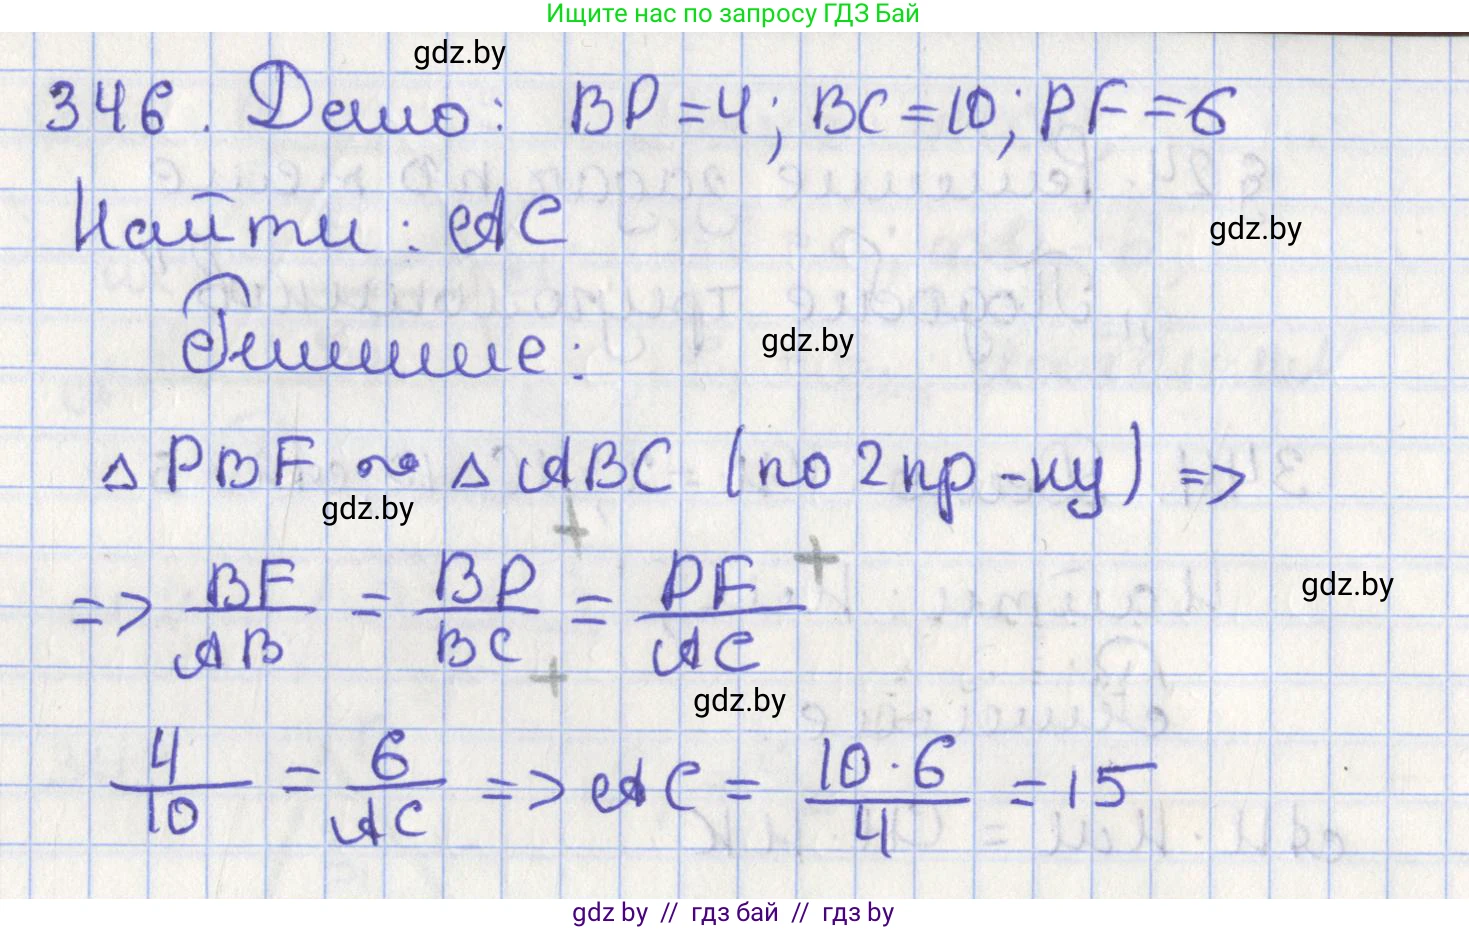 Ищите нас по запросу ГДЗ Бай
gdz.by
346. Дано: BP = 4; BC = 10; PF = 6
Найти: AC
gdz.by
Решение:
gdz.by
△ PBF ~ △ ABC (по 2 пр-ку) =>
gdz.by
=> BF/AB = BP/BC = PF/AC
gdz.by
gdz.by
4/10 = 6/AC => AC = 10·6/4 = 15
gdz by // гдз бай // гдз by